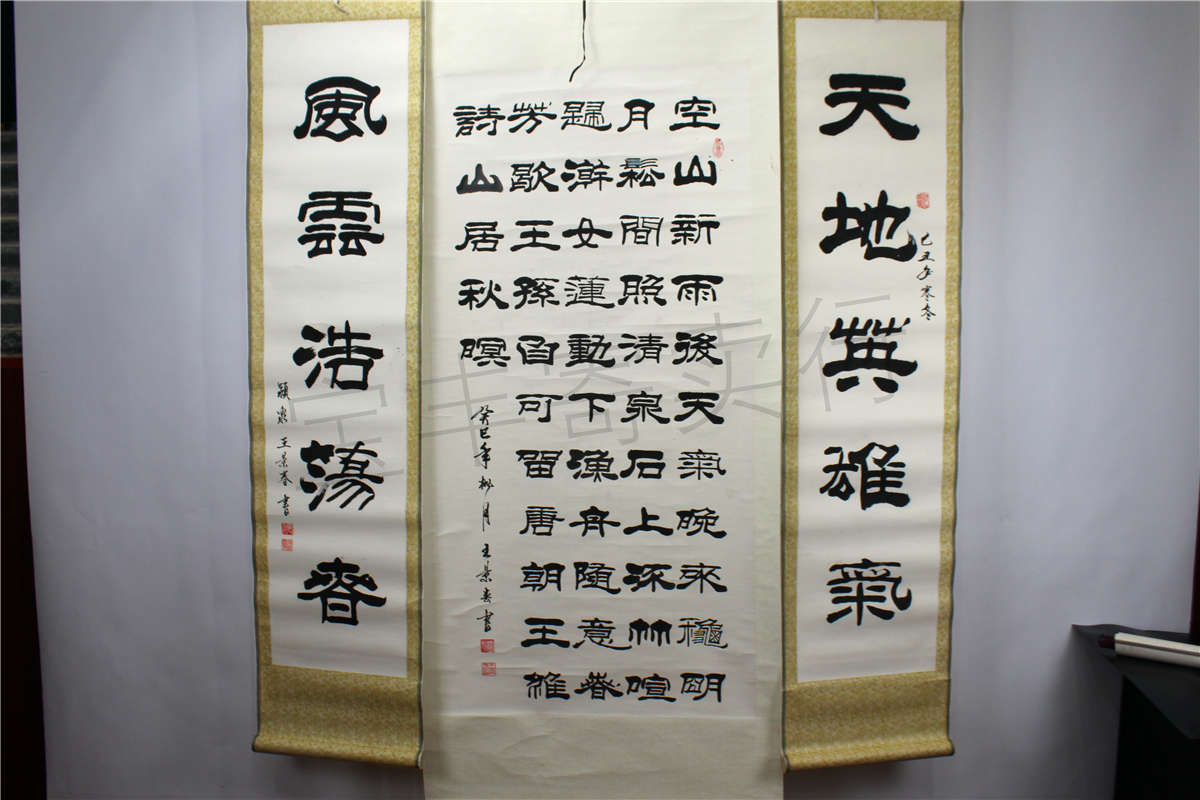 天地英雄氣
己丑年寒冬
空山新雨後天氣晚來龝明
月鬆間照清泉石上流竹喧
歸澣女蓮動下漁舟隨意春
芳歇王孫自可留唐朝王維
詩山居秋暝
癸巳年月王景春書
風雲浩蕩春
穎泉王景春書
宝丰寄卖行